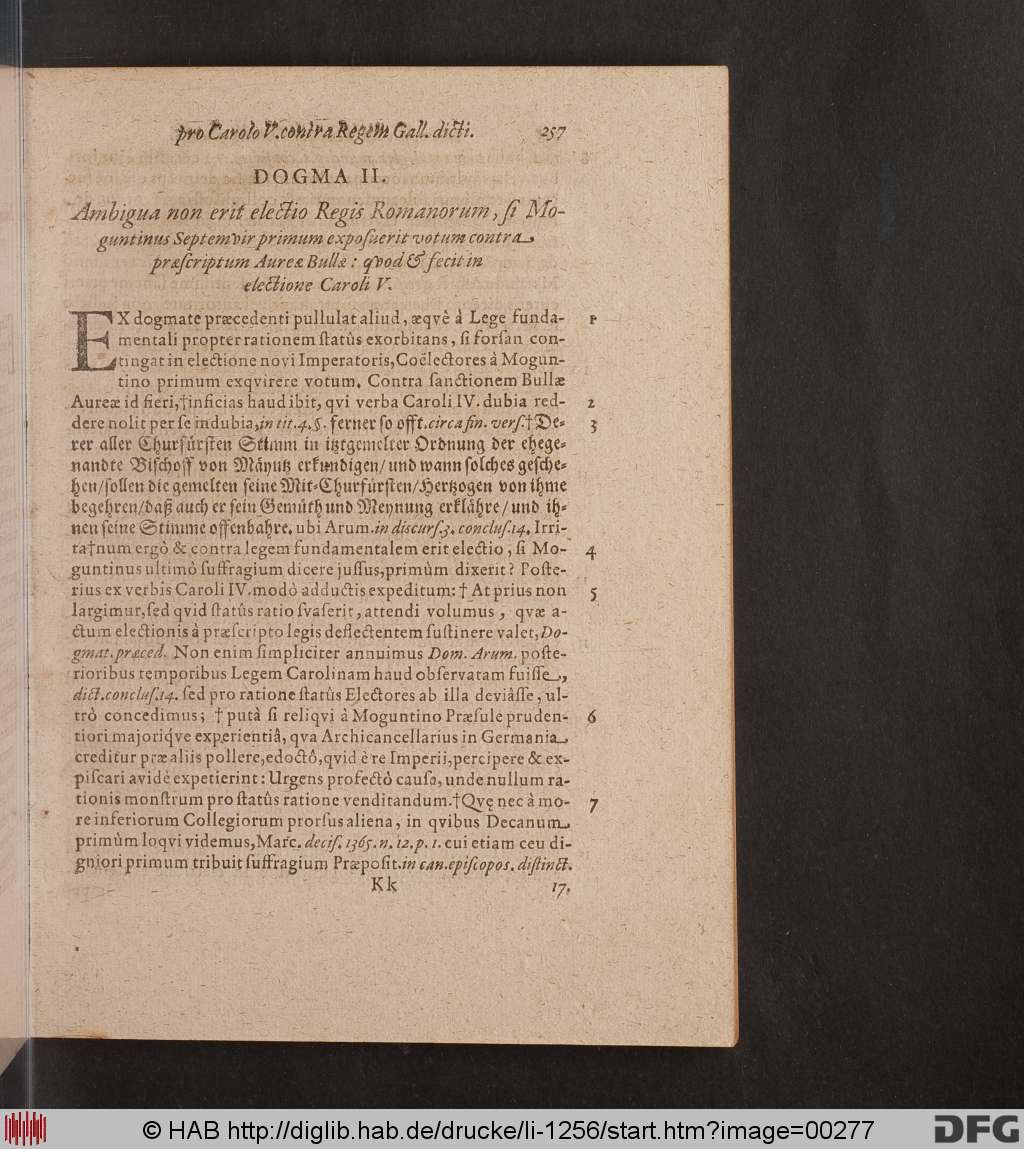 pro Carolo V. contra Regem Gall. dicti. 257
DOGMA II.
Ambigua non erit electio Regis Romanorum, ſi Mo-
guntinus Septemvir primum expoſuerit votum contra
præſcriptum Aureæ Bullæ: qvod & fecit in
electione Caroli V.
EX dogmate præcedenti pullulat aliud, æqvè à Lege funda- 1
mentali propter rationem ſtatûs exorbitans, ſi forſan con-
tingat in electione novi Imperatoris, Coëlectores à Mogun-
tino primum exqvirere votum. Contra ſanctionem Bullæ
Aureæ id fieri, †inficias haud ibit, qvi verba Caroli IV. dubia red- 2
dere nolit per ſe indubia, in tit. 4. §. ferner ſo offt. circa fin. verſ. †De- 3
rer aller Churfürſten Stimm in itztgemelter Ordnung der ehege-
nandte Biſchoff von Mäyntz erkundigen/ und wann ſolches geſche-
hen/ ſollen die gemelten ſeine Mit-Churfürſten/ Hertzogen von ihme
begehren/ daß auch er ſein Gemüth und Meynung erklähre/ und ih-
nen ſeine Stimme offenbahre. ubi Arum. in diſcurſ. 3. concluſ. 14. Irri-
ta†num ergò & contra legem fundamentalem erit electio, ſi Mo- 4
guntinus ultimò ſuffragium dicere juſſus, primùm dixerit? Poſte-
rius ex verbis Caroli IV. modò adductis expeditum: † At prius non 5
largimur, ſed qvid ſtatûs ratio ſvaſerit, attendi volumus, qvæ a-
ctum electionis à præſcripto legis deflectentem ſuſtinere valet, Do-
gmat. præced. Non enim ſimpliciter annuimus Dom. Arum. poſte-
rioribus temporibus Legem Carolinam haud obſervatam fuiſſe,
dict. concluſ. 14. ſed pro ratione ſtatûs Electores ab illa deviâſſe, ul-
trò concedimus; † putà ſi reliqvi à Moguntino Præſule pruden- 6
tiori majoriq́ve experientiâ, qva Archicancellarius in Germania
creditur præ aliis pollere, edoctô, qvid è re Imperii, percipere & ex-
piſcari avidè expetierint: Urgens profectò cauſa, unde nullum ra-
tionis monſtrum pro ſtatûs ratione venditandum. †Qvę nec à mo- 7
re inferiorum Collegiorum prorſus aliena, in qvibus Decanum
primùm loqvi videmus, Marc. deciſ. 1365. n. 12. p. 1. cui etiam ceu di-
gniori primum tribuit ſuffragium Præpoſit. in can. epiſcopos. diſtinct.
Kk 17.
© HAB http://diglib.hab.de/drucke/li-1256/start.htm?image=00277
DFG